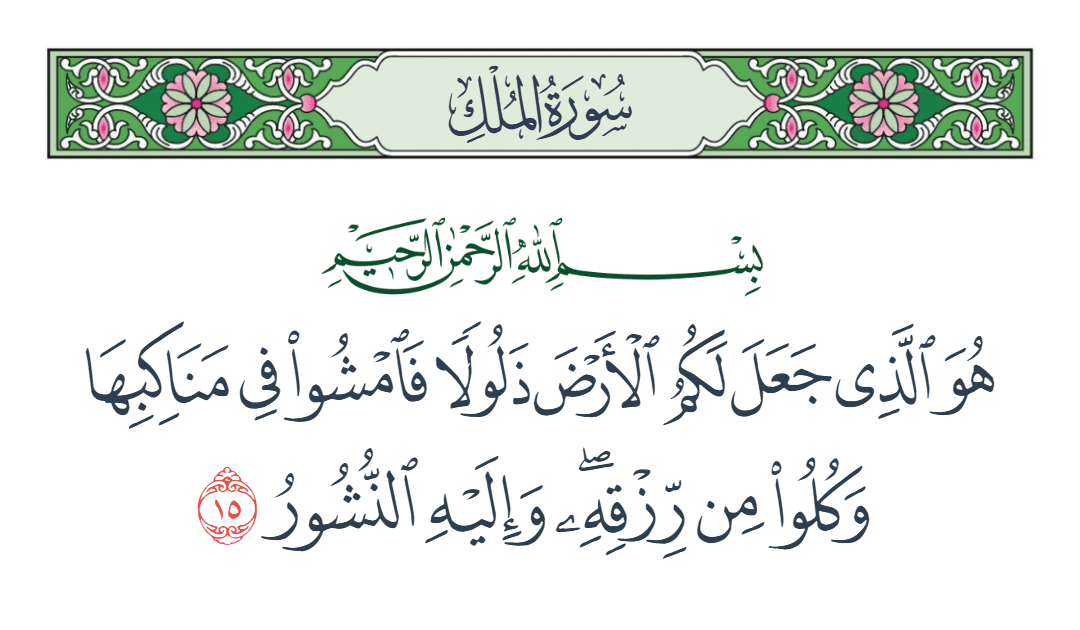 سُورَةُ المُلْكِ
بِسْمِ ٱللَّهِ ٱلرَّحْمَٰنِ ٱلرَّحِيمِ
هُوَ ٱلَّذِى جَعَلَ لَكُمُ ٱلْأَرْضَ ذَلُولًا فَٱمْشُوا۟ فِى مَنَاكِبِهَا
وَكُلُوا۟ مِن رِّزْقِهِۦ ۖ وَإِلَيْهِ ٱلنُّشُورُ ١٥